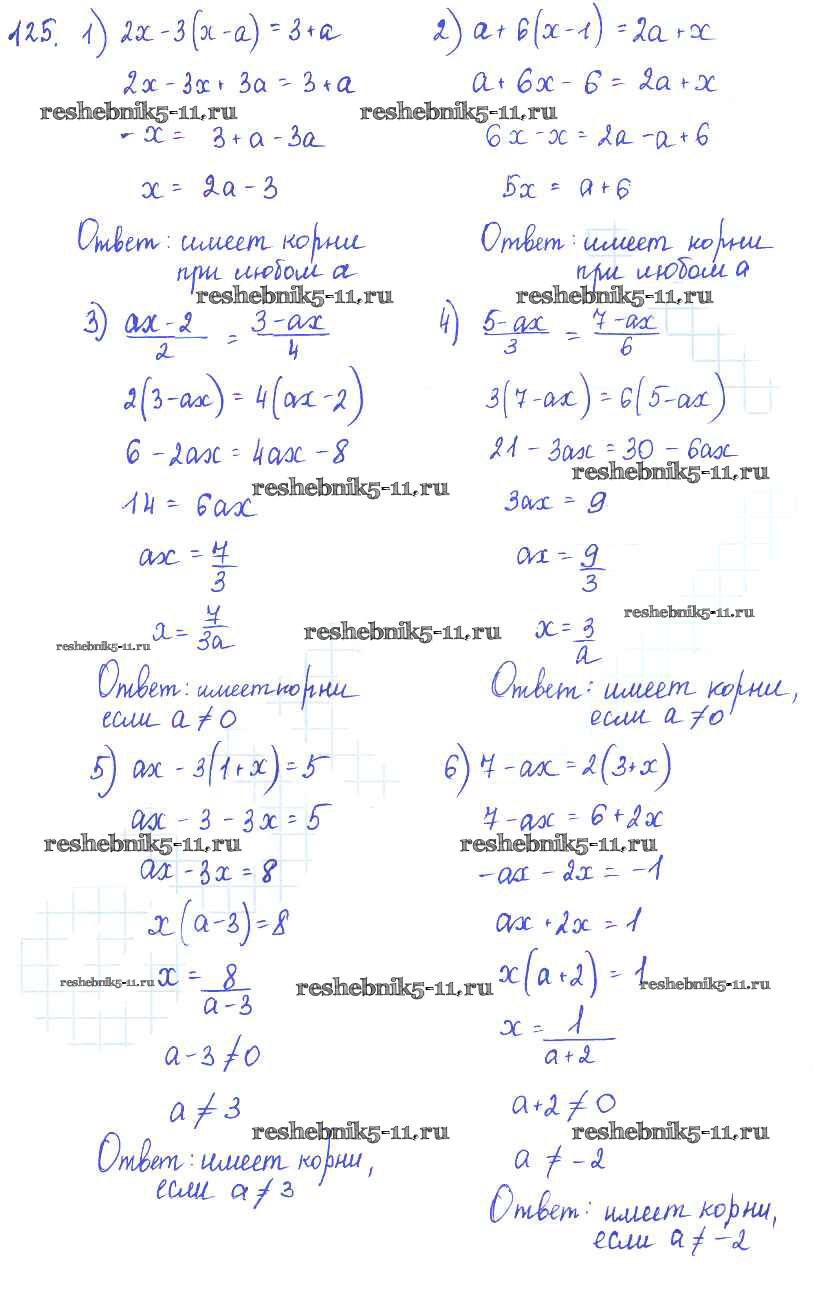 125. 1) 2x - 3(x - a) = 3 + a
2x - 3x + 3a = 3 + a
reshebnik5-11.ru
- x = 3 + a - 3a
x = 2a - 3
Ответ: имеет корни
при любом a
reshebnik5-11.ru
2) a + 6(x - 1) = 2a + x
a + 6x - 6 = 2a + x
reshebnik5-11.ru
6x - x = 2a - a + 6
5x = a + 6
Ответ: имеет корни
при любом a
reshebnik5-11.ru
3) (ax - 2)/2 = (3 - ax)/4
2(3 - ax) = 4(ax - 2)
6 - 2ax = 4ax - 8
reshebnik5-11.ru
14 = 6ax
ax = 7/3
x = 7/3a
reshebnik5-11.ru
reshebnik5-11.ru
Ответ: имеет корни
если a ≠ 0
4) (5 - ax)/3 = (7 - ax)/6
3(7 - ax) = 6(5 - ax)
21 - 3ax = 30 - 6ax
reshebnik5-11.ru
3ax = 9
ax = 9/3
reshebnik5-11.ru
x = 3/a
Ответ: имеет корни,
если a ≠ 0
5) ax - 3(1 + x) = 5
ax - 3 - 3x = 5
reshebnik5-11.ru
ax - 3x = 8
x(a - 3) = 8
reshebnik5-11.ru
x = 8/(a - 3)
reshebnik5-11.ru
a - 3 ≠ 0
a ≠ 3
reshebnik5-11.ru
Ответ: имеет корни,
если a ≠ 3
6) 7 - ax = 2(3 + x)
7 - ax = 6 + 2x
reshebnik5-11.ru
- ax - 2x = -1
ax + 2x = 1
x(a + 2) = 1
reshebnik5-11.ru
x = 1/(a + 2)
a + 2 ≠ 0
reshebnik5-11.ru
a ≠ -2
Ответ: имеет корни,
если a ≠ -2